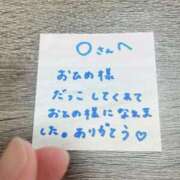 ○さんへ
おひめ様
だっこしてくれて
おひめ様になえま
した。ありがとう♡